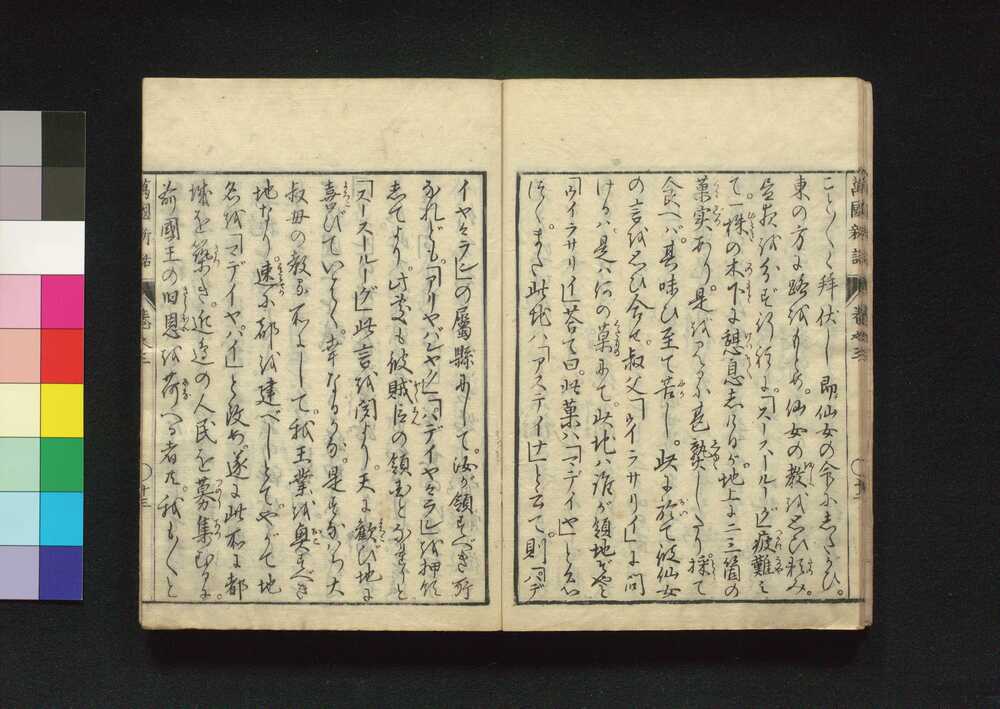 ことごとく拜伏し即仙女の命にしたがひ。
東の方に路をもとめ。仙女の教を思ひ
て一株の木下に憩息しけるが。地上に二三箇の
菓実あり。是を見るに甚熟したり採て
食へバ。其味ひ至て苦し。此に於て彼仙女
の言を思ひ合せ。叔父「ウイラサリイ」に問
けるハ是ハ何の菓にて。此地ハ誰が領地ぞやと
「ウイラサリイ」荅て曰。此菓ハ「マデイヤ」と名
づく。また此地ハ「アステイナ」と云て。則「パデ
イヤ々ラン」の屬縣にして。汝が領すべき所
なれども。「アリヤバジヤノ」「パデイヤ々ラン」を押領
してより。此處も彼賊臣の領地となせりと
「スースールーグ」此言を聞より。天に歓び地に
喜びていはく。幸なるかな。是すなはち大
叔母の教る所にして。我王業を興すべき
地なり。速に都を建べしとてやがて地
名を「マデイヤパイ」と改め。遂に此所に都
城を築き。近邊の人民を募集むるに。
前國王の旧恩を荷へる者共。我も〳〵と
萬國新話
卷之三
〇十三